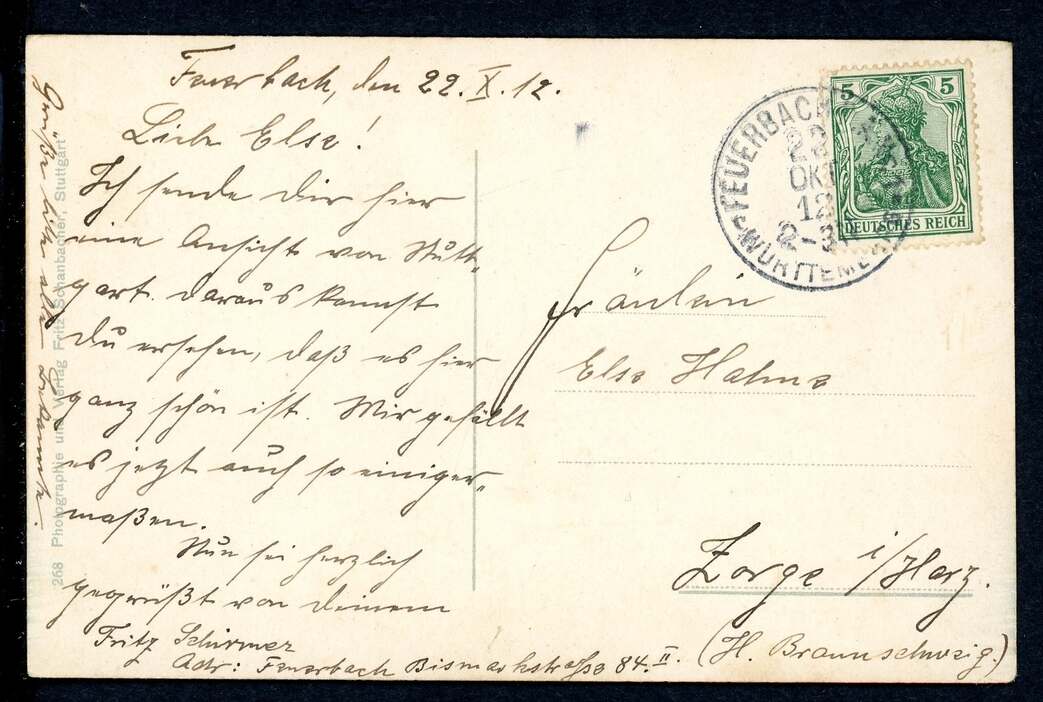 Feuerbach, den 22.X.12.
Liebe Else!
Ich sende Dir hier
eine Ansicht von Stutt-
gart. daraus kannst
Du ersehen, daß es hier
ganz schön ist. Mir gefällt
es jetzt auch so einiger-
maßen.
Nun sei herzlich
gegrüßt von Deinem
Fritz Schirmer
Adr: Feuerbach Bismarkstrasse 84.II.
Grüße bitte alle Bekannte.
268 Photographie und Verlag Fritz Schanbacher, Stuttgart
FEUERBACH
22
OKT
12
2-3
WÜRTTEMB
5 5
DEUTSCHES REICH
Fräulein
Else Hahne
Zorge i/Harz.
(H. Braunschweig.)